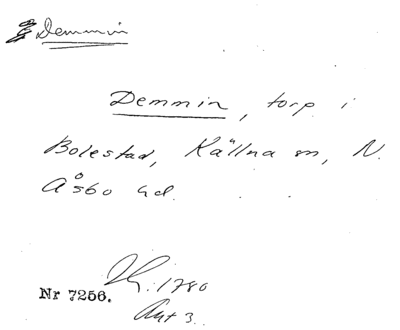 Demmin
Demmin, torp i
Bolestad, Källna sn, N.
Åsbo hd.
1780
Nr 7256.
Ant 3.